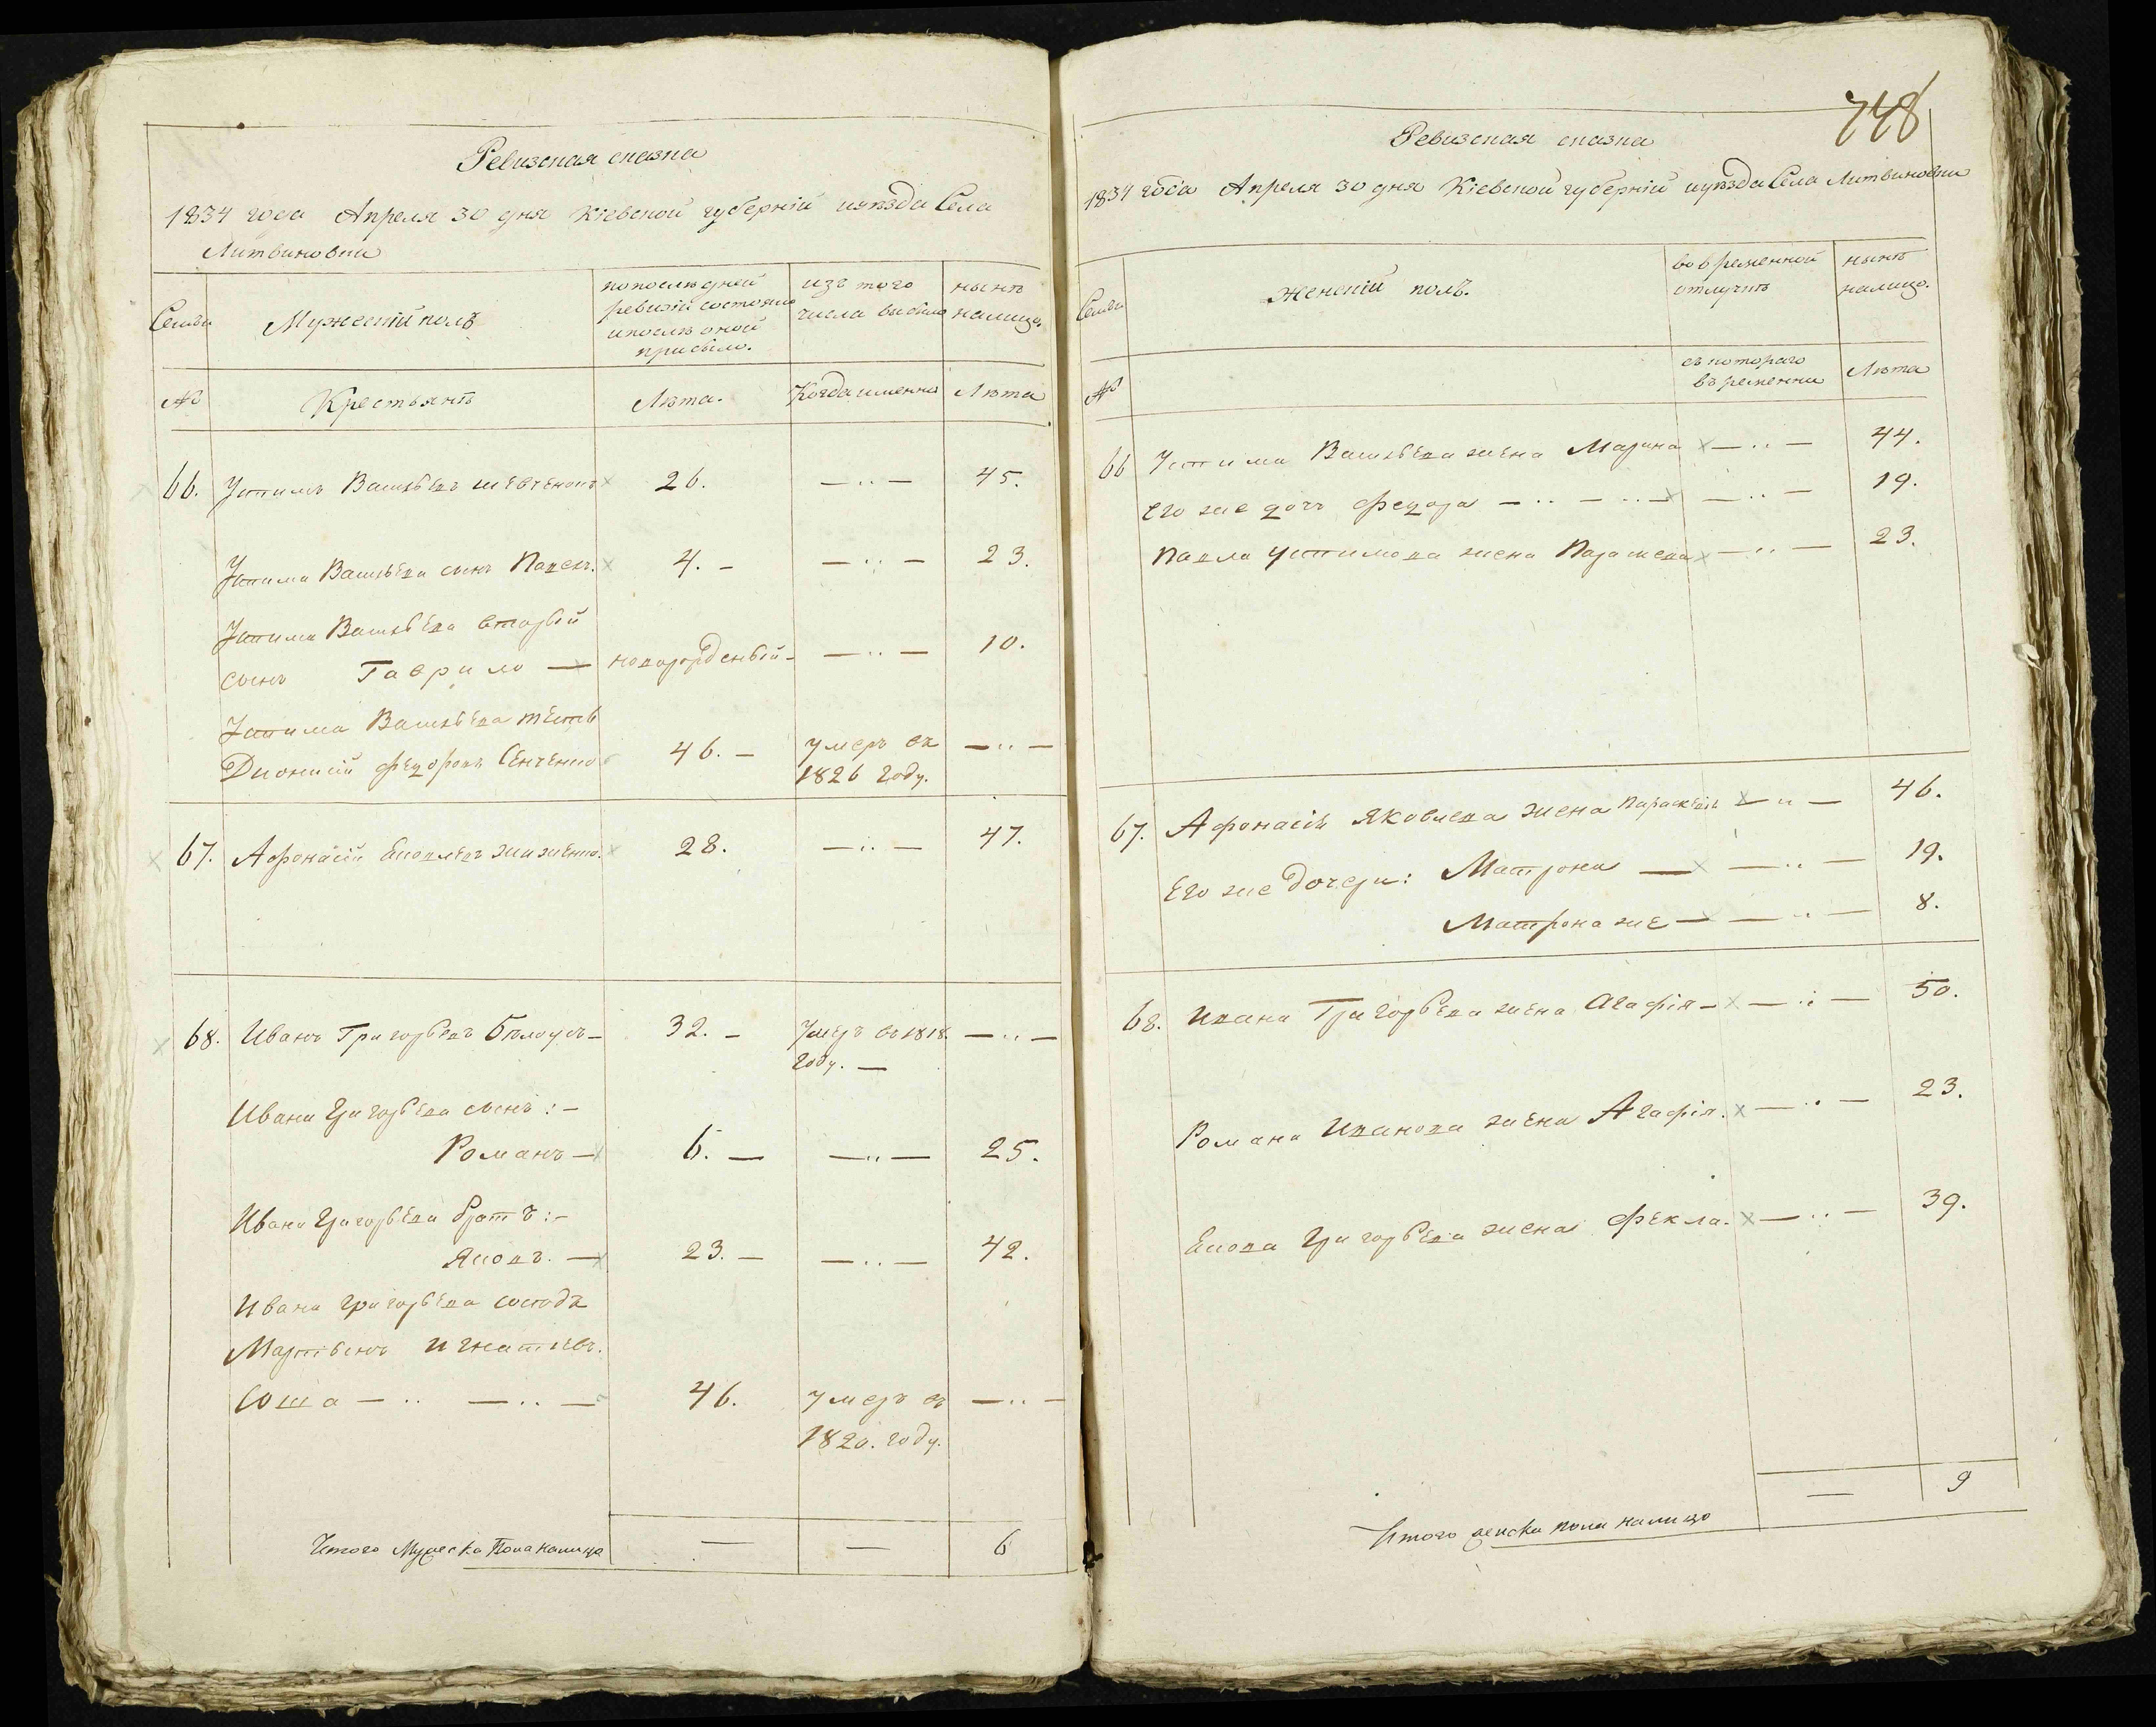 Ревизская сказка
1834 года Апреля 30 дня Кіевской губерніи и уѣзда Села
Литвиновки
Семьи
Мужескій полъ
по послѣдней
ревизіи состояло
и послѣ оной
прибыло.
изъ того
числа выбыло
нынѣ
налицо
№
Крестьянѣ
Лѣта.
Когда именно
Лѣта
66. Устимъ Васильевъ Шевченокъ 26. —..— 45.
Устима Васильева сынъ Павелъ. 4. — —..— 23.
Устима Васильева вторый
сынъ Гаврило — новорожденый — —..— 10.
Устима Васильева тесть
Дионисій Федоровъ Сенченко 46. — умеръ въ —..—
1826 году.
67. Афонасій Яковлевъ 28. —..— 47.
68. Иванъ Григорьевъ Бѣлоусъ — 32. — Умеръ въ 1818. —..—
году. —
Ивана Григорьева сынъ: —
Романъ — 6. — —..— 25.
Ивана Григорьева братъ: —
Яковъ. — 23. — —..— 42.
Ивана Григорьева сосѣдъ
Мартынъ Игнатьевъ.
Соша —.. —..— 46. умеръ въ —..—
1820. году.
Итого Мужеска Пола налицо — — 6
748
Ревизская сказка
1834 года Апреля 30 дня Кіевской губерніи и уѣзда Села Литвиновки
Семьи
Женскій полъ.
во временной
отлучкѣ
нынѣ
налицо.
№
съ котораго
времени
Лѣта
66 Устима Васильева жена Марина —..— 44.
его же дочь Федора —..—..— —..— 19.
Павла Устимова жена Параскева —..— 23.
67. Афонасія Яковлева жена Параскевія —..— 46.
Его же дочери: Матрона — —..— 19.
Матрона же — —..— 8.
68. Ивана Григорьева жена Агафія — —..— 50.
Романа Иванова жена Агафія. —..— 23.
Якова Григорьева жена Фекла. —..— 39.
Итого женска пола налицо — 9